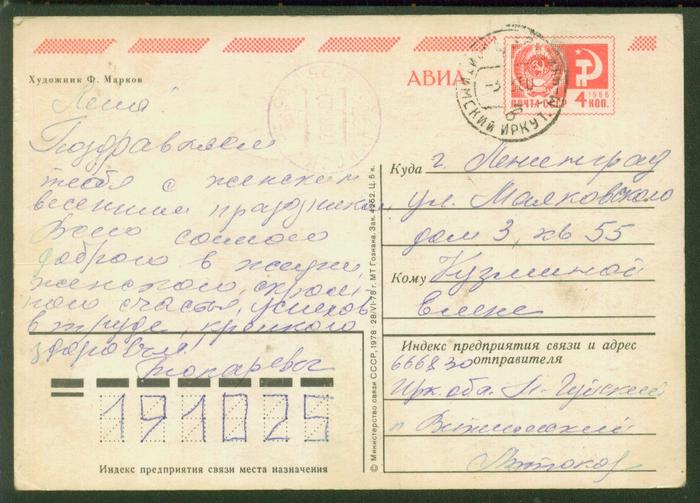 Художник Ф. Марков
АВИА
ПОЧТА СССР
1966
4 КОП.
ВИТИМСКИЙ ИРКУТ.
Лена!
Поздравляем
тебя с женским
весенним праздником
Всего самого
доброго в жизни,
женского, скром-
ного счастья, успехов
в труде, крепкого
здоровья.
Токаревы
Куда г. Ленинград
ул. Маяковского
дом 3, кв 55
Кому Кузьминой
Елене
Индекс предприятия связи и адрес
отправителя
666830
Ирк. обл.
п. Витимский
191025
Индекс предприятия связи места назначения
© Министерство связи СССР, 1978 28/VI-78 г. МТ Гознака. Зак. 4252. Ц. 5 к.